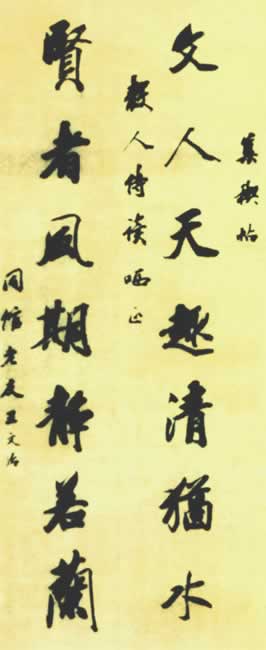 集禊帖
文人天趣清猶水
穀人侍讀哂正
賢者風期靜若蘭
同館老友王文治